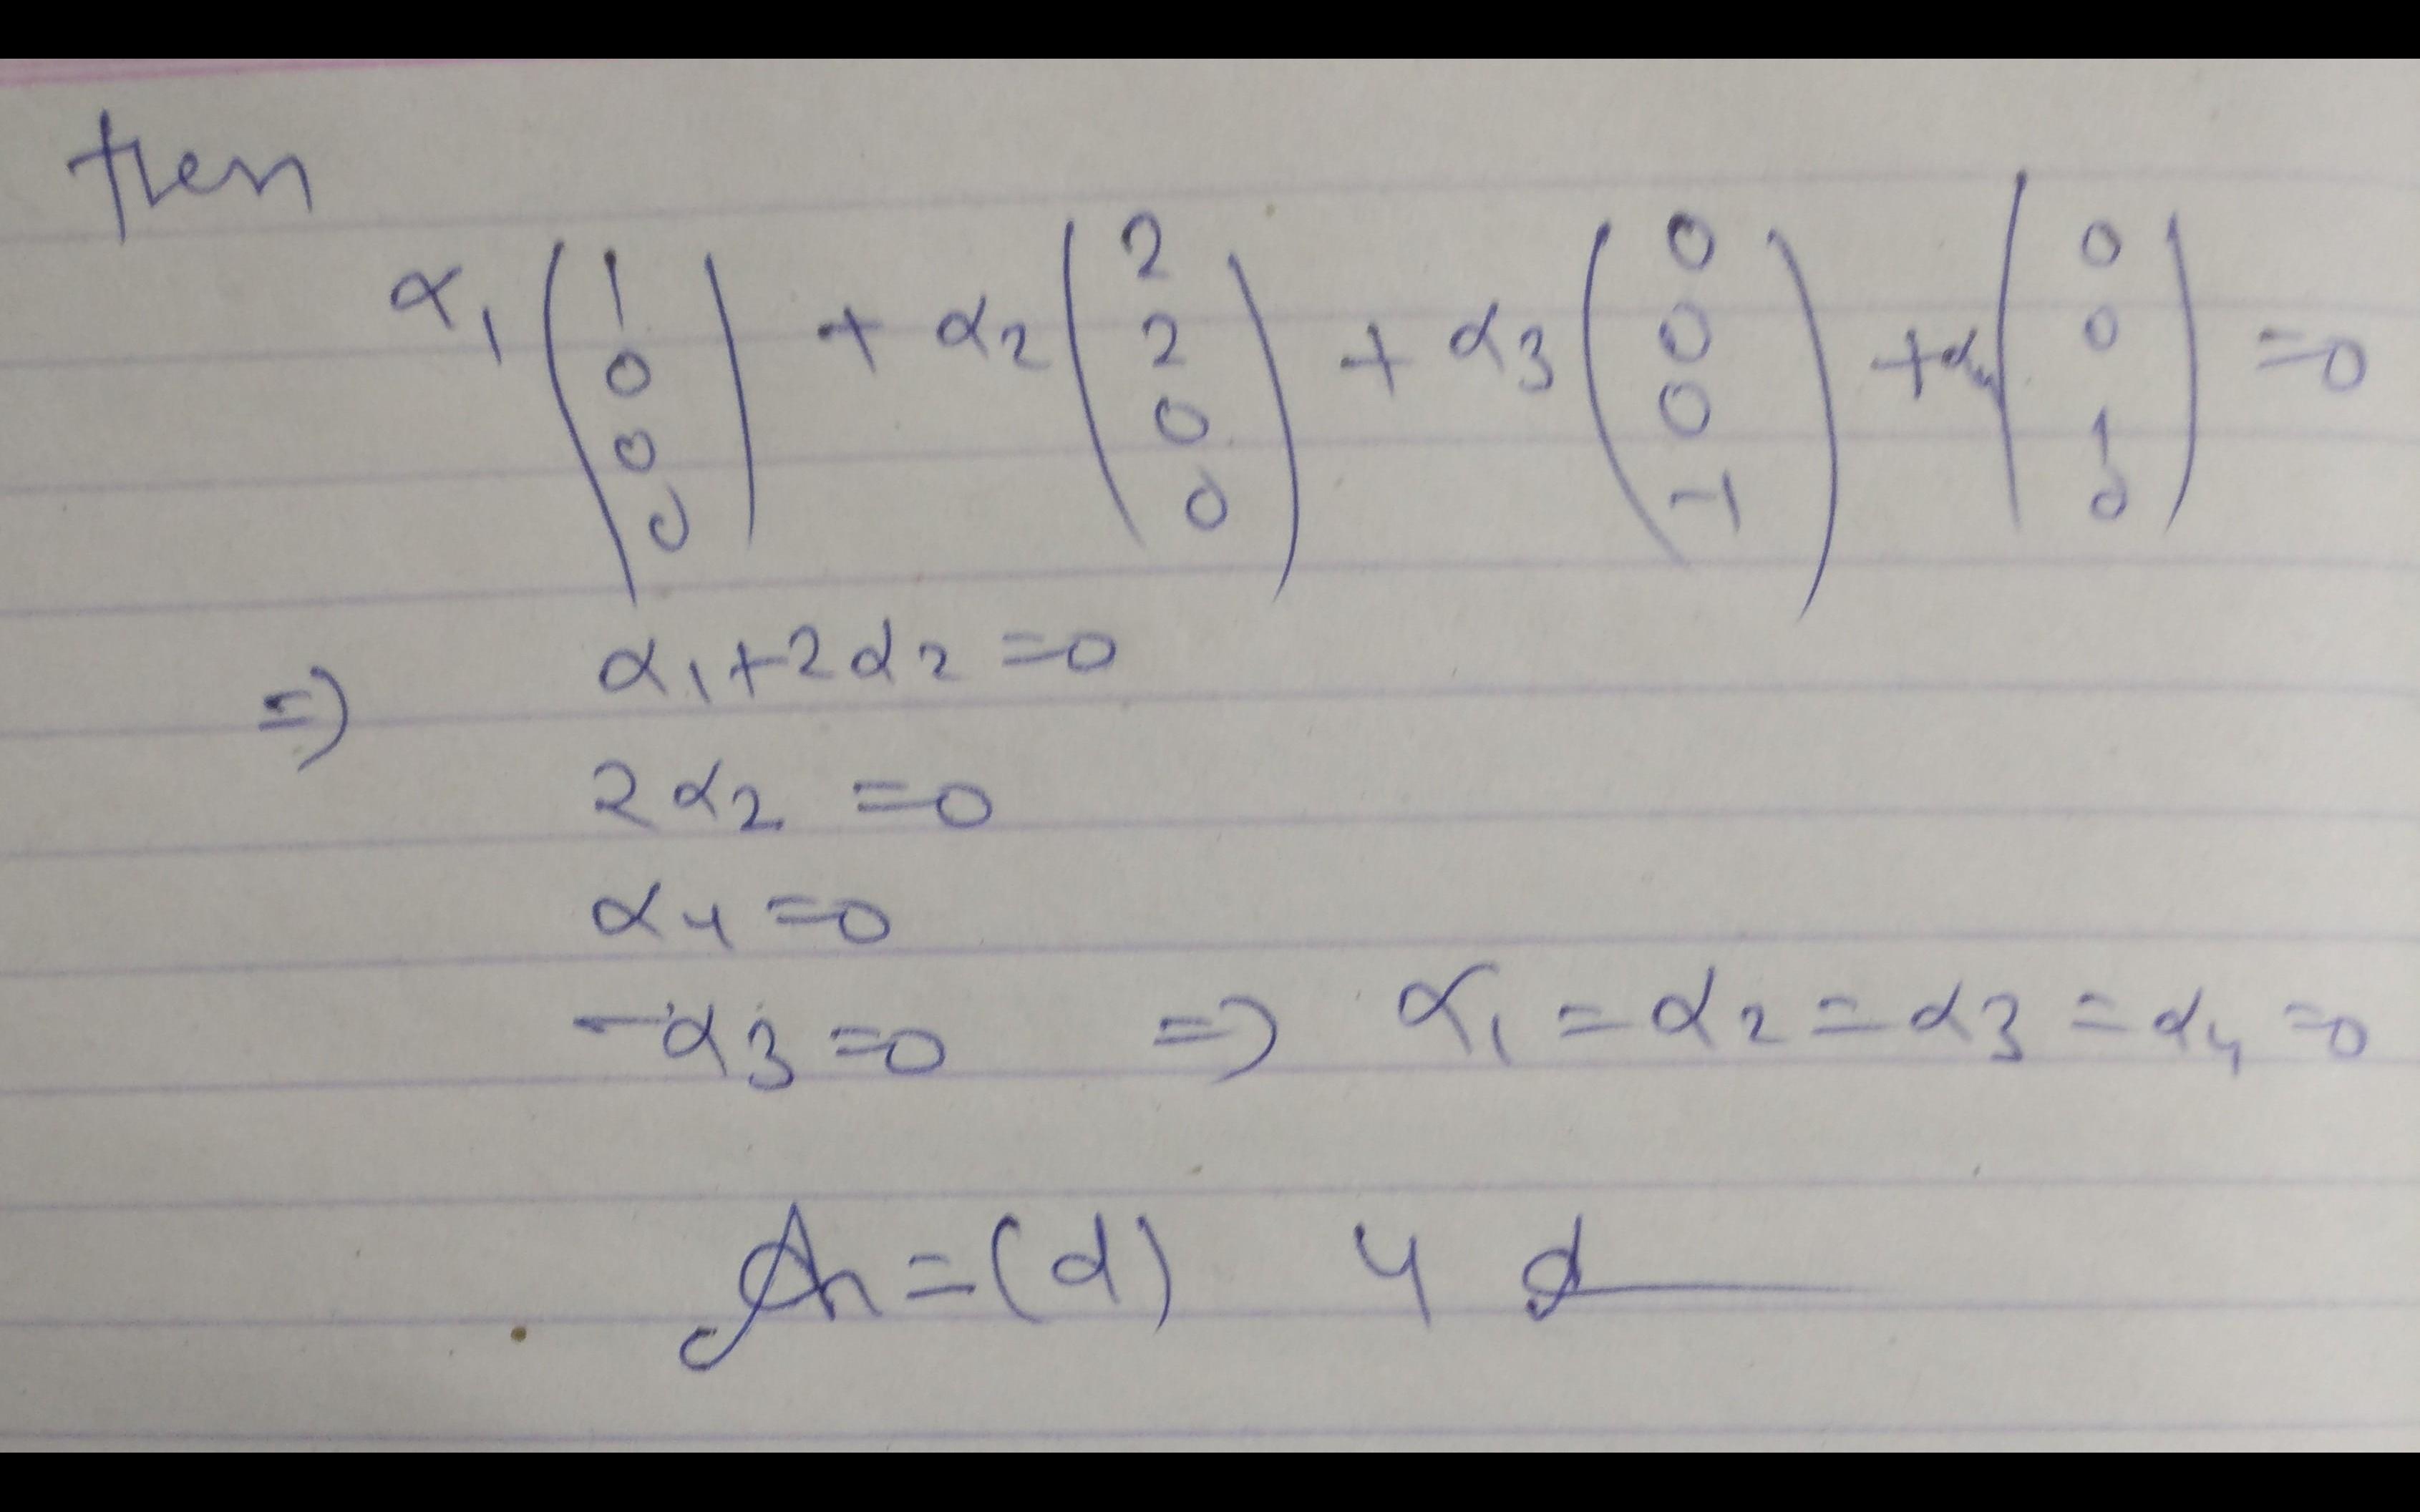 then
α₁ (1 0 0 0) + α₂ (2 2 0 0) + α₃ (0 0 0 -1) + α₄ (0 0 1 0) = 0
⇒ α₁ + 2α₂ = 0
2α₂ = 0
α₄ = 0
-α₃ = 0 ⇒ α₁ = α₂ = α₃ = α₄ = 0
An = (d) 4